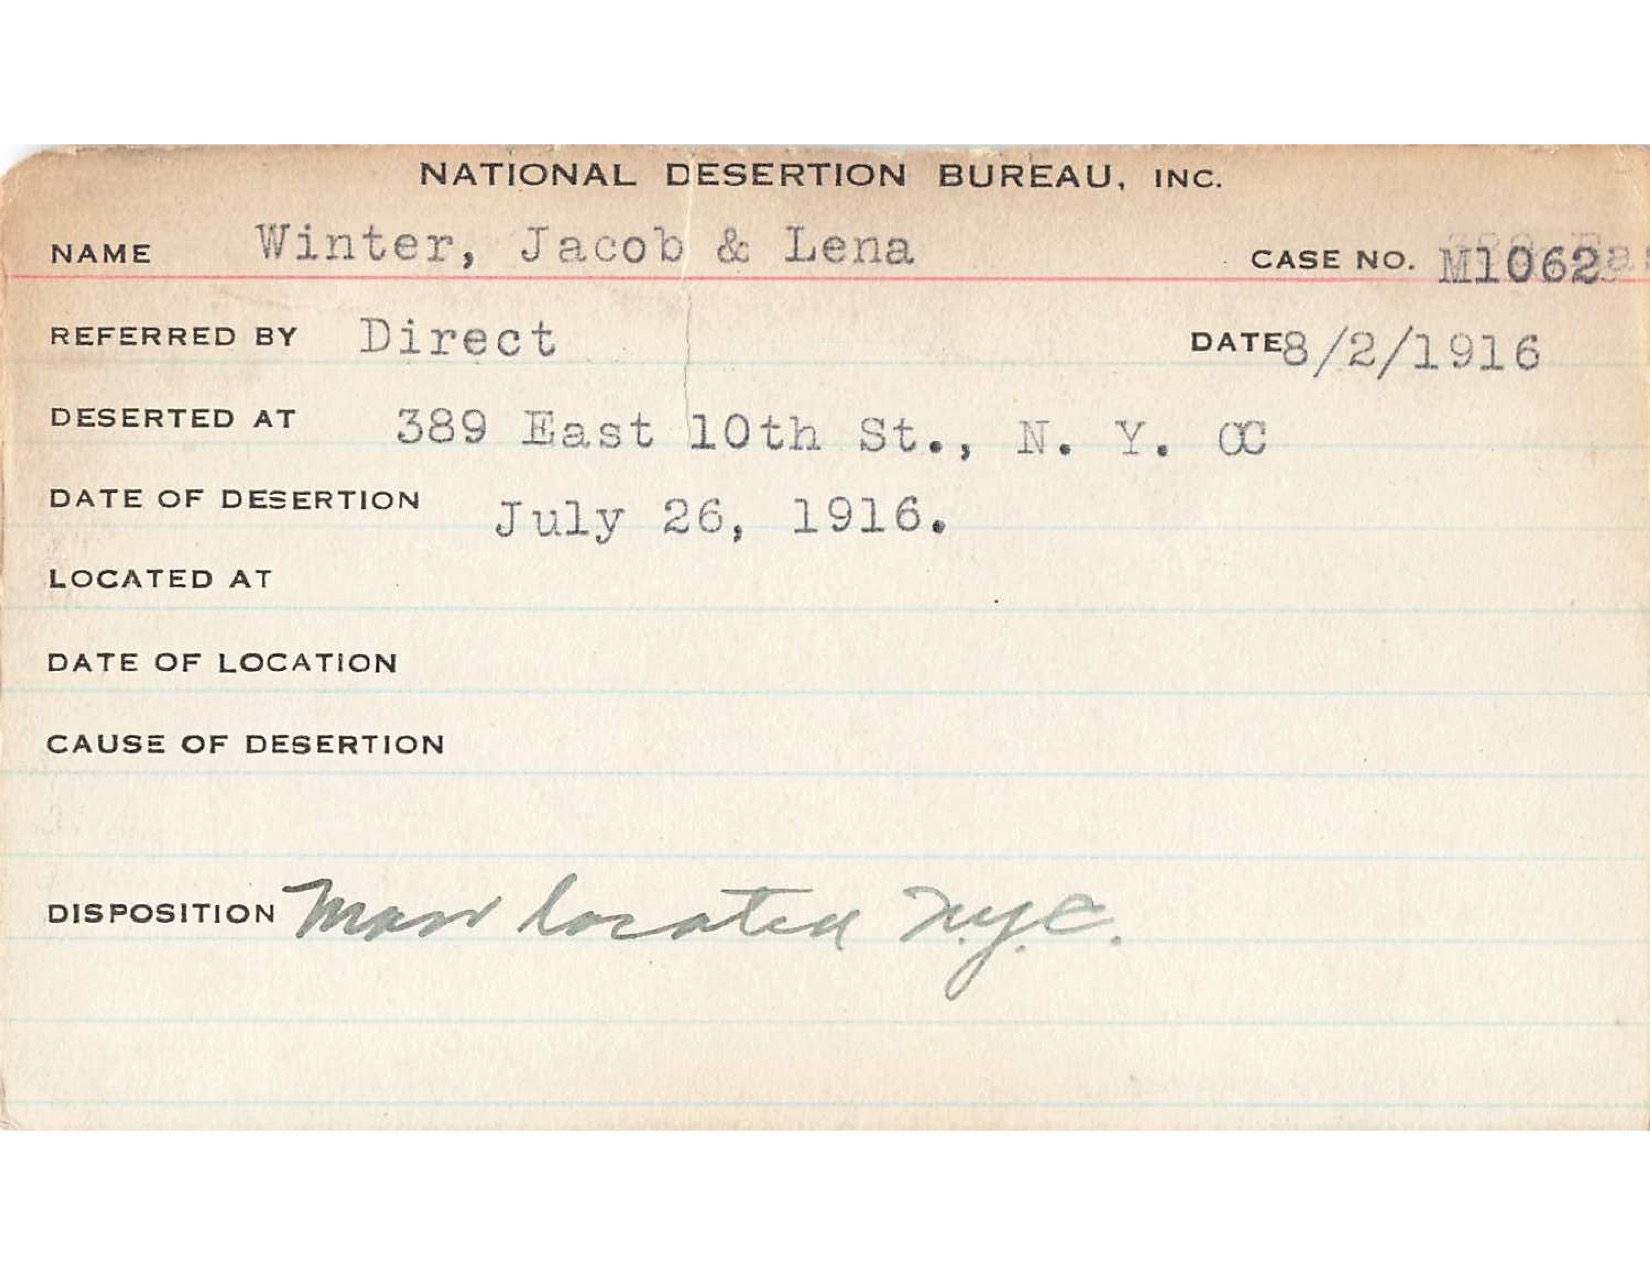 NATIONAL DESERTION BUREAU, INC.
NAME Winter, Jacob & Lena CASE NO. M1062
REFERRED BY Direct DATE 8/2/1916
DESERTED AT 389 East 10th St., N. Y. C
DATE OF DESERTION July 26, 1916.
LOCATED AT
DATE OF LOCATION
CAUSE OF DESERTION
DISPOSITION Man located N.Y.C.